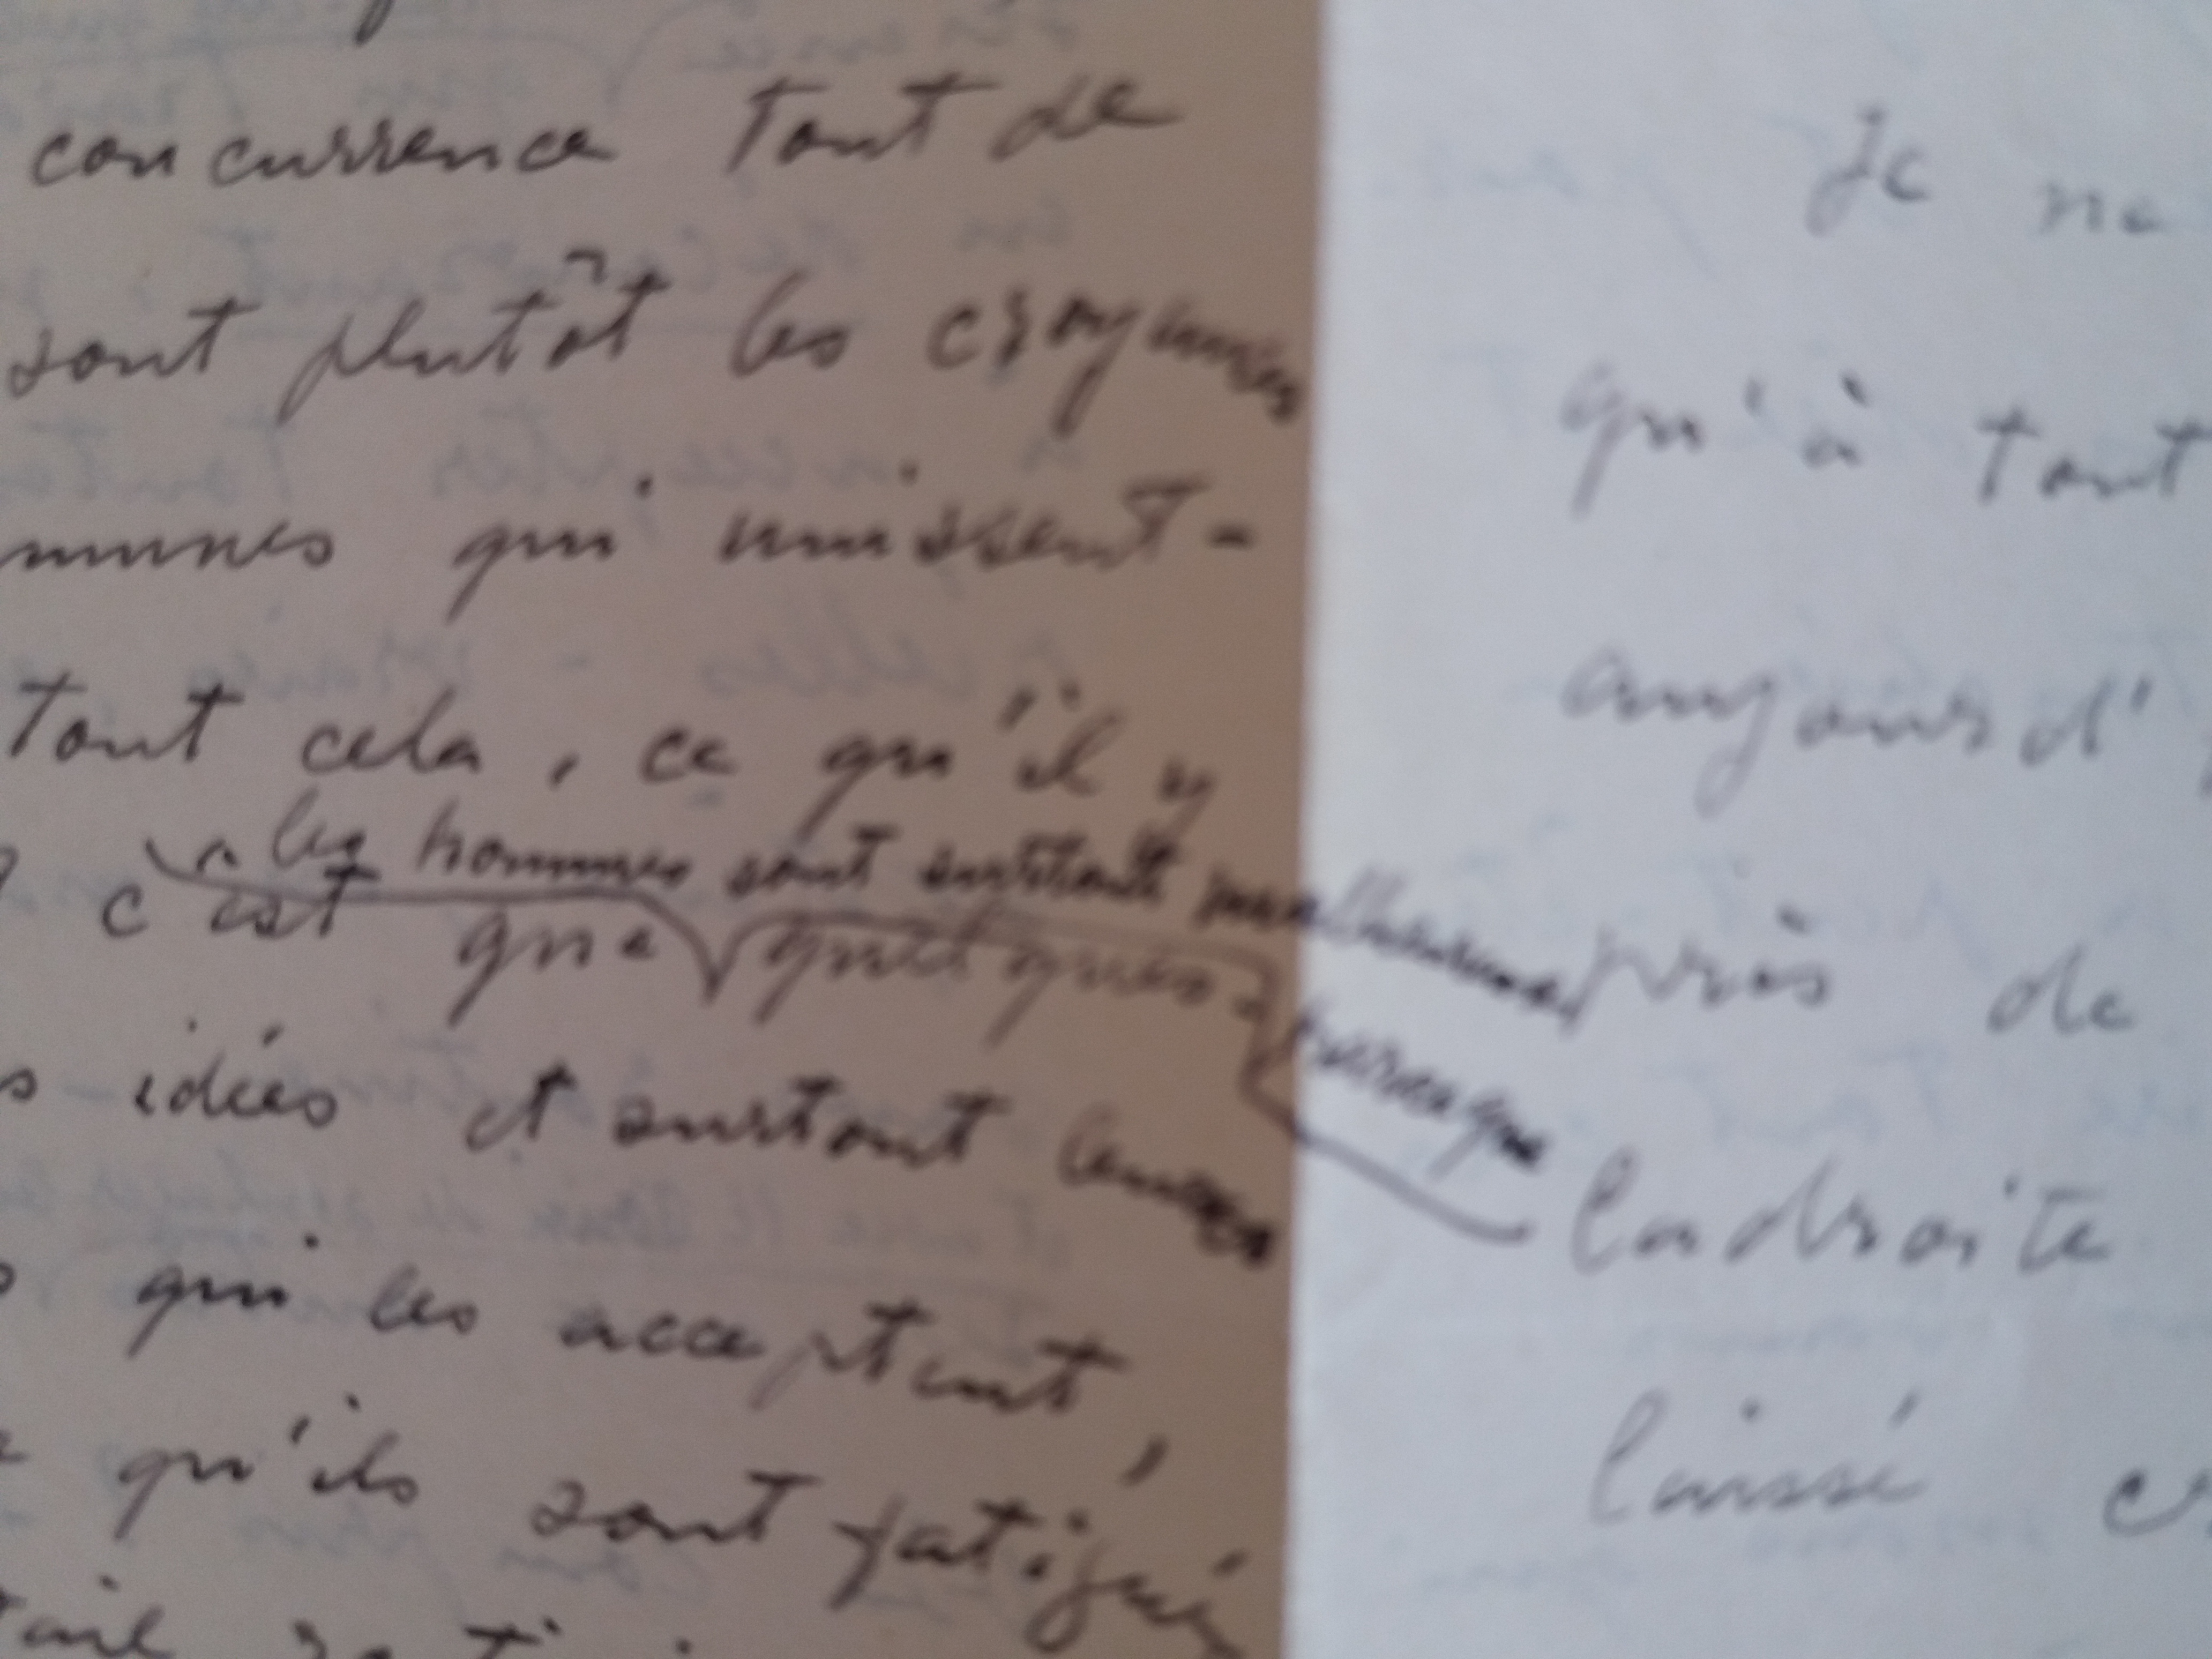 concurrence tout de
sont plutôt les croyances
munes qui unissent-
tout cela, ce qu'il y
les hommes sont surtout malheureux
c'est que quelques-
lorsque
idées et surtout
qui les acceptent,
qu'ils sont fatigués
Je ne
qu'à tout
aujourd'
près de
la droite
laissé